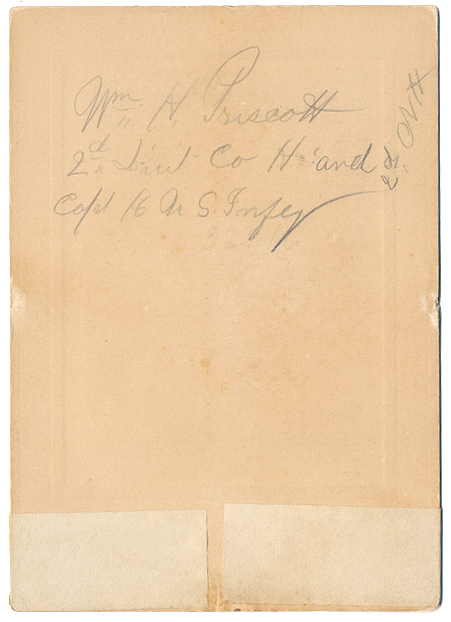 Wm H. Priscott
2d Lieut Co H and
Capt 16 U S Infy